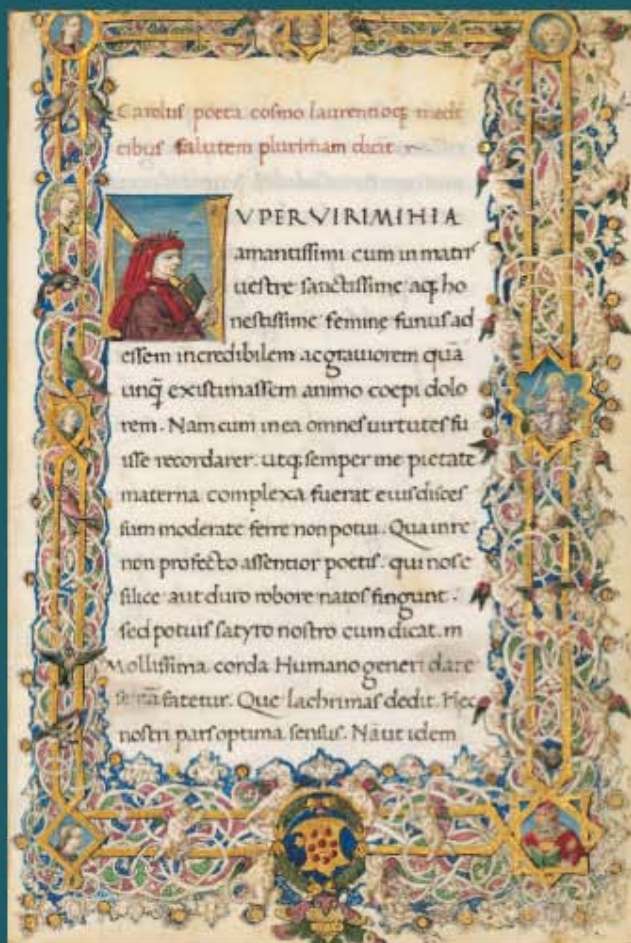 Carolus poeta cosmo laurentioq; medi
cibus salutem plurimam dicit
NVPER VIRI MIHI A
amantissimi cum in matris
uestre sanctissime atq; ho
nestissime femine funus ad
essem incredibilem ac grauiorem quā
unq̄ existimassem animo coepi dolo
rem. Nam cum in ea omnes uirtutes fu
isse recordarer. utq; semper me pietate
materna complexa fuerat eius disces
sum moderate ferre non potui. Qua in re
non profecto assentior poetis. qui nos e
silice aut duro robore natos fingunt.
sed potius satyro nostro cum dicat. m
Mollissima corda Humano generi dare
se fatetur. Que lachrimas dedit. Hec
nostri pars optima sensus. Nā ut idem